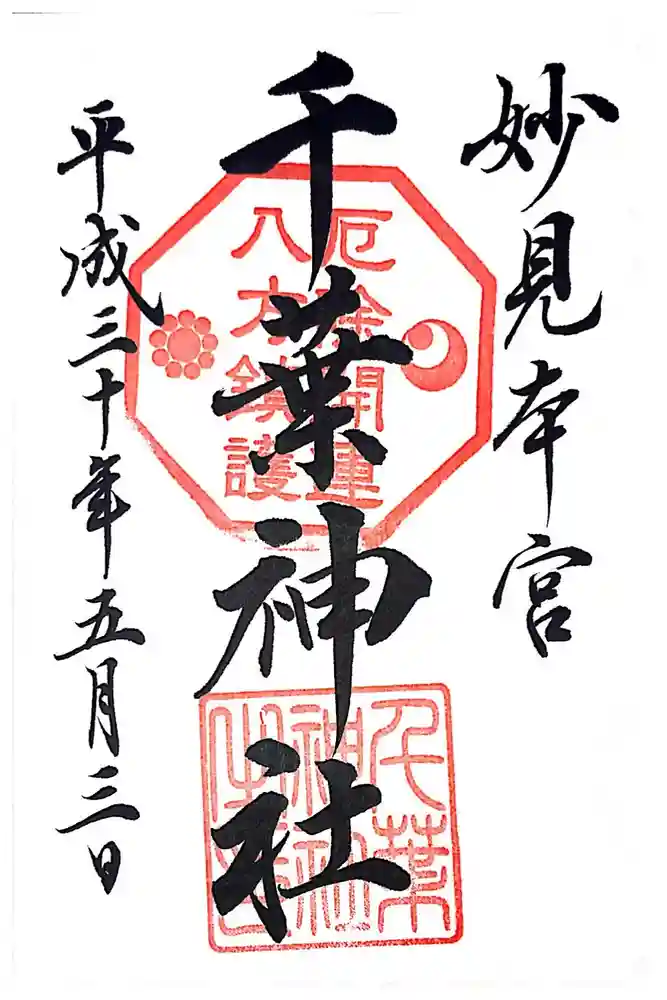 妙見本宮
千葉神社
平成三十年五月三日
厄除開運
八方鎮護
千葉
神社